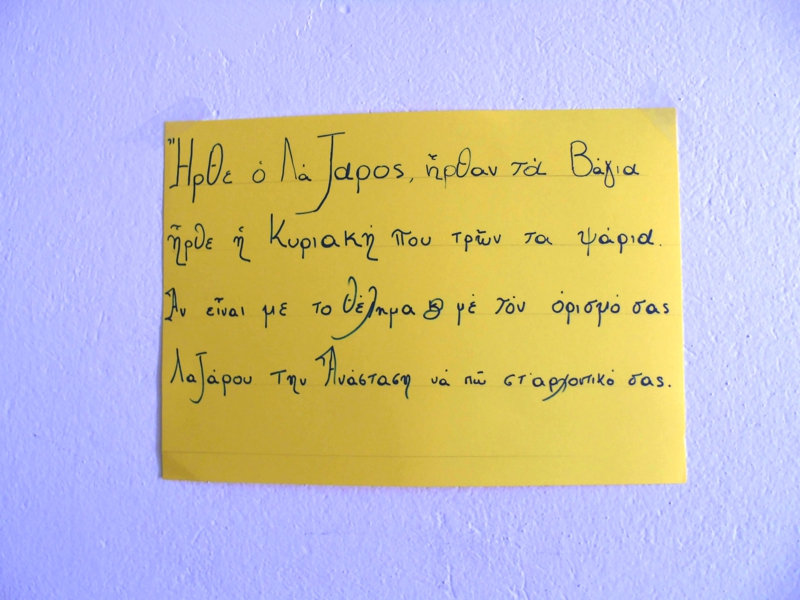 Ἦρθε ὁ Λάζαρος, ἦρθαν τά Βάγια
ἦρθε ἡ Κυριακή που τρῶν τα ψάρια.
Ἄν εἶναι με το θέλημα & μέ τόν ὁρισμό σας
Λαζάρου την Ἀνάσταση νά πῶ στ' ἀρχοντικό σας.